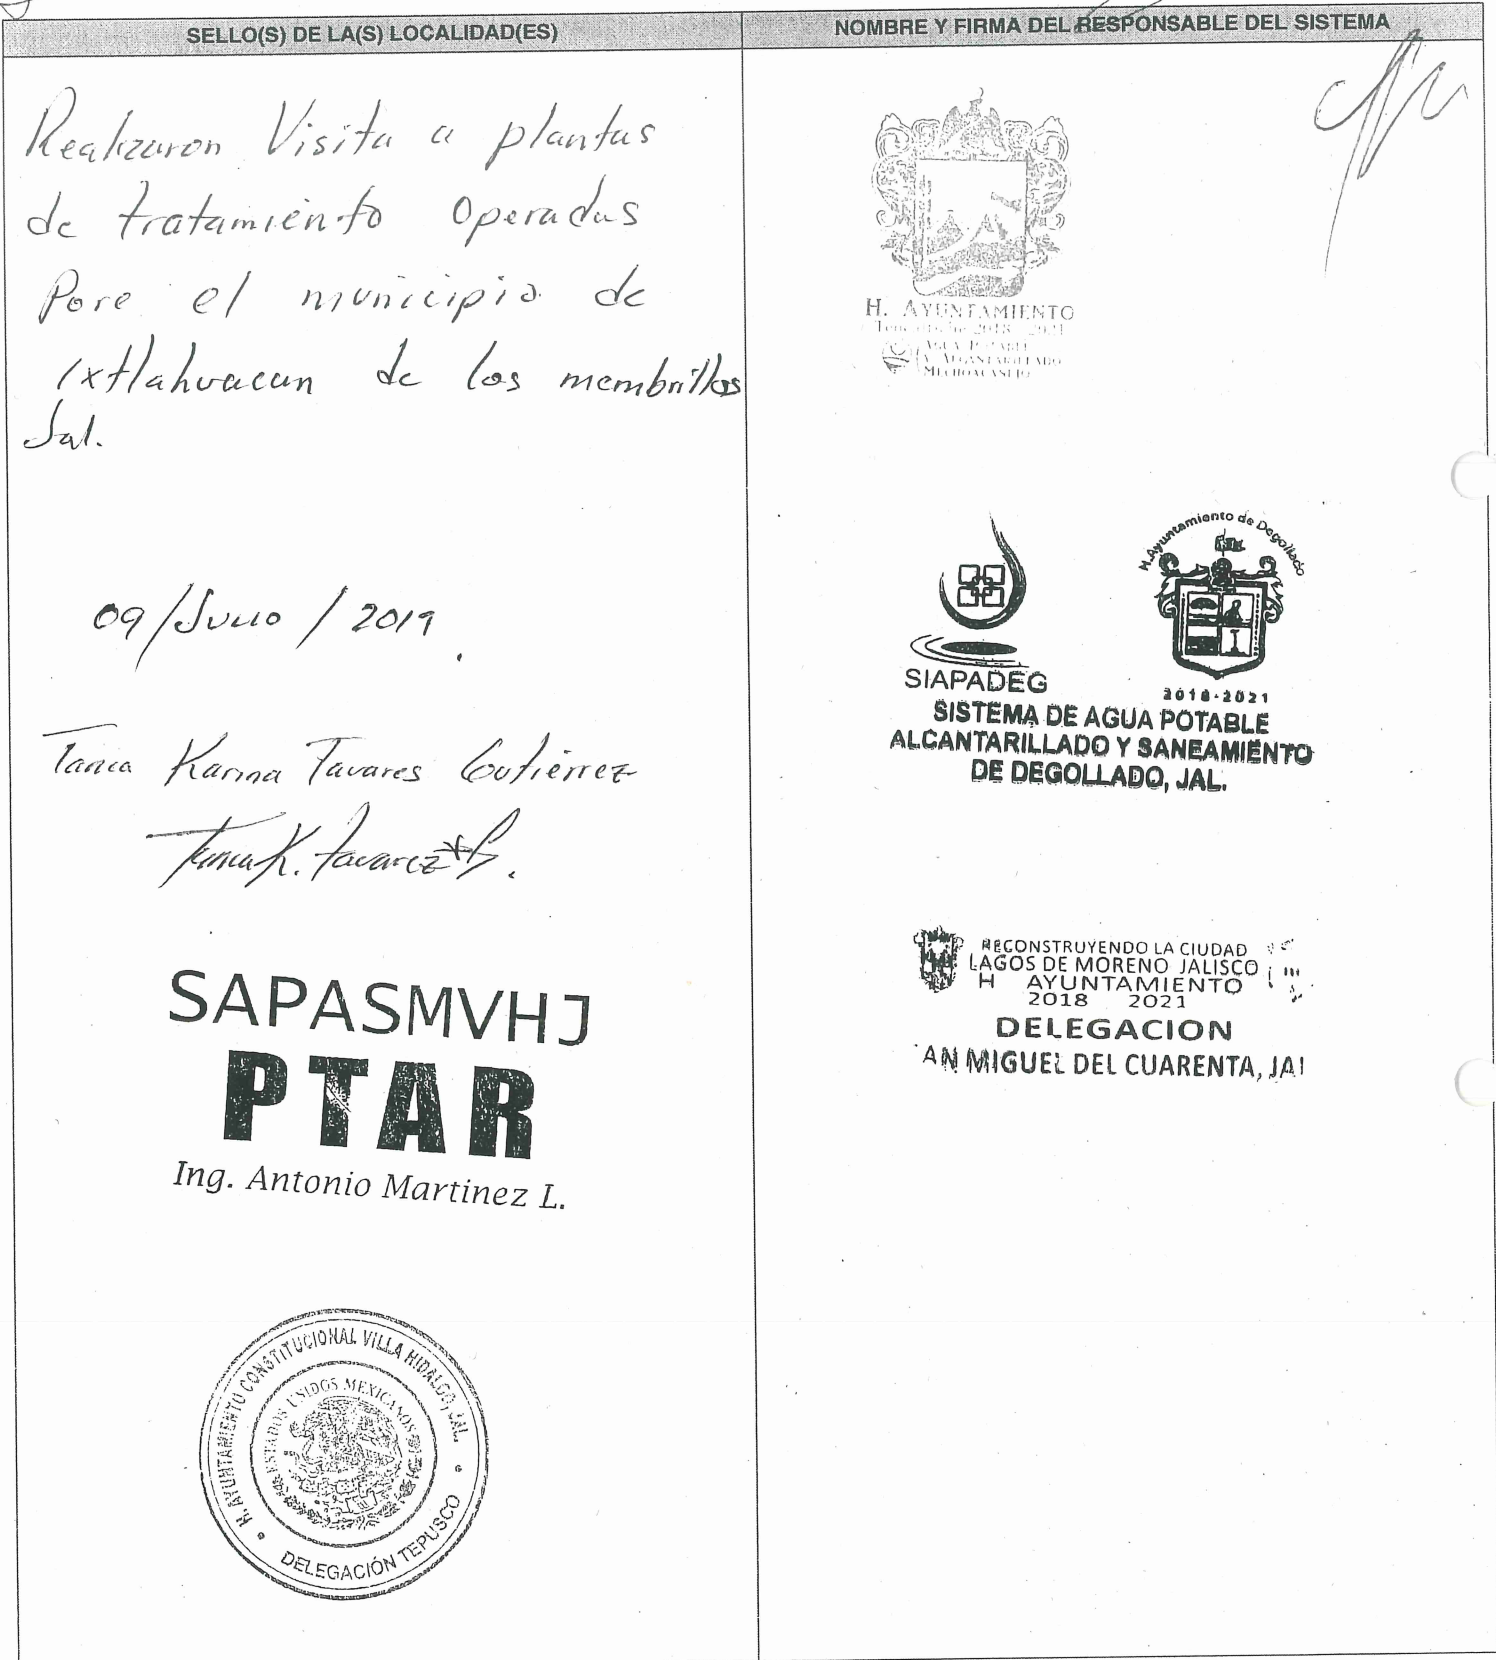 SELLO(S) DE LA(S) LOCALIDAD(ES)
Realizaron Visita a plantas
de tratamiento Operadas
Pore el municipio de
Ixtlahuacan de los membrillos
Jal.
09/Julio/2019.
Tania Karina Tavares Gutiérrez
Tania K. Tavarez G.
SAPASMVHJ
PTAR
Ing. Antonio Martinez L.
H. AYUNTAMIENTO CONSTITUCIONAL VILLA HIDALGO, JAL.
ESTADOS UNIDOS MEXICANOS
DELEGACIÓN TEPUSCO
NOMBRE Y FIRMA DEL RESPONSABLE DEL SISTEMA
H. AYUNTAMIENTO
2018 2021
AGUA POTABLE
Y ALCANTARILLADO
MECHOACANEJO
H. Ayuntamiento de Degollado
SIAPADEG
2018-2021
SISTEMA DE AGUA POTABLE
ALCANTARILLADO Y SANEAMIENTO
DE DEGOLLADO, JAL.
RECONSTRUYENDO LA CIUDAD
LAGOS DE MORENO JALISCO
H AYUNTAMIENTO
2018 2021
DELEGACION
AN MIGUEL DEL CUARENTA, JAL